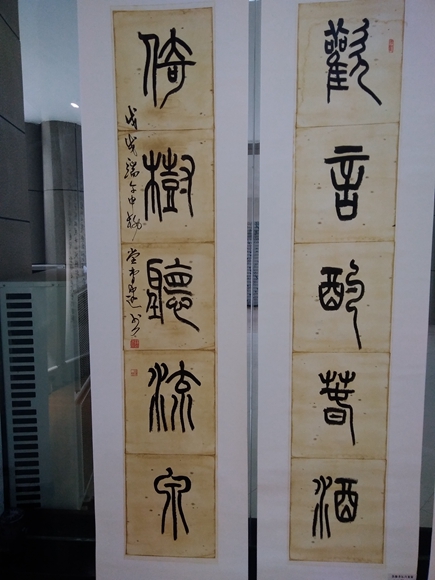 歡言酌春酒
倚樹聽流泉
戊戌端午